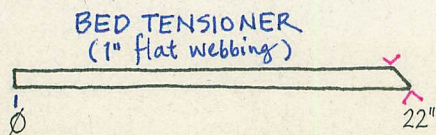 BED TENSIONER
(1" flat webbing)
Ø
22"